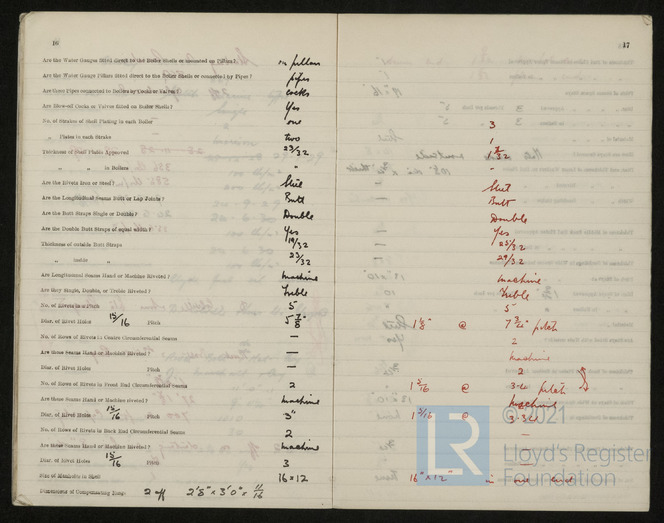 16
17
Are the Water Gauges fitted direct to the Boiler Shells or mounted on Pillars? on pillars
Are the Water Gauge Pillars fitted direct to the Boiler Shells or connected by Pipes? pipes
Are these Pipes connected to Boilers by Cocks or Valves? cocks
Are Blow-off Cocks or Valves fitted on Boiler Shells? Yes
No. of Strakes of Shell Plating in each Boiler one 3
„ Plates in each Strake two 1
Thickness of Shell Plates Approved 23/32
„ „ in Boilers „ „
Are the Rivets Iron or Steel? Steel Steel
Are the Longitudinal Seams Butt or Lap Joints? Butt Butt
Are the Butt Straps Single or Double? Double Double
Are the Double Butt Straps of equal width? Yes Yes
Thickness of outside Butt Straps 19/32 23/32
„ inside „ 23/32 29/32
Are Longitudinal Seams Hand or Machine Riveted? machine machine
Are they Single, Double, or Treble Riveted? Treble Treble
No. of Rivets in a Pitch 5 5
Diar. of Rivet Holes 15/16 Pitch 5 7/8" 1 1/8" @ pitch
No. of Rows of Rivets in Centre Circumferential Seams — 2
Are these Seams Hand or Machine Riveted? — machine
Diar. of Rivet Holes Pitch —
No. of Rows of Rivets in Front End Circumferential Seams 2 2
Are these Seams Hand or Machine Riveted? machine machine
Diar. of Rivet Holes 15/16 Pitch 3" 1 3/16 @
No. of Rows of Rivets in Back End Circumferential Seams 2 —
Are these Seams Hand or Machine Riveted? machine —
Diar. of Rivet Holes 15/16 Pitch 3 —
Size of Manholes in Shell 16 x 12 16" x 12" in one end
Dimensions of Compensating Rings 2 off 2'8" x 3'0" x 11/16
© 2021
LR
Lloyd's Register
Foundation